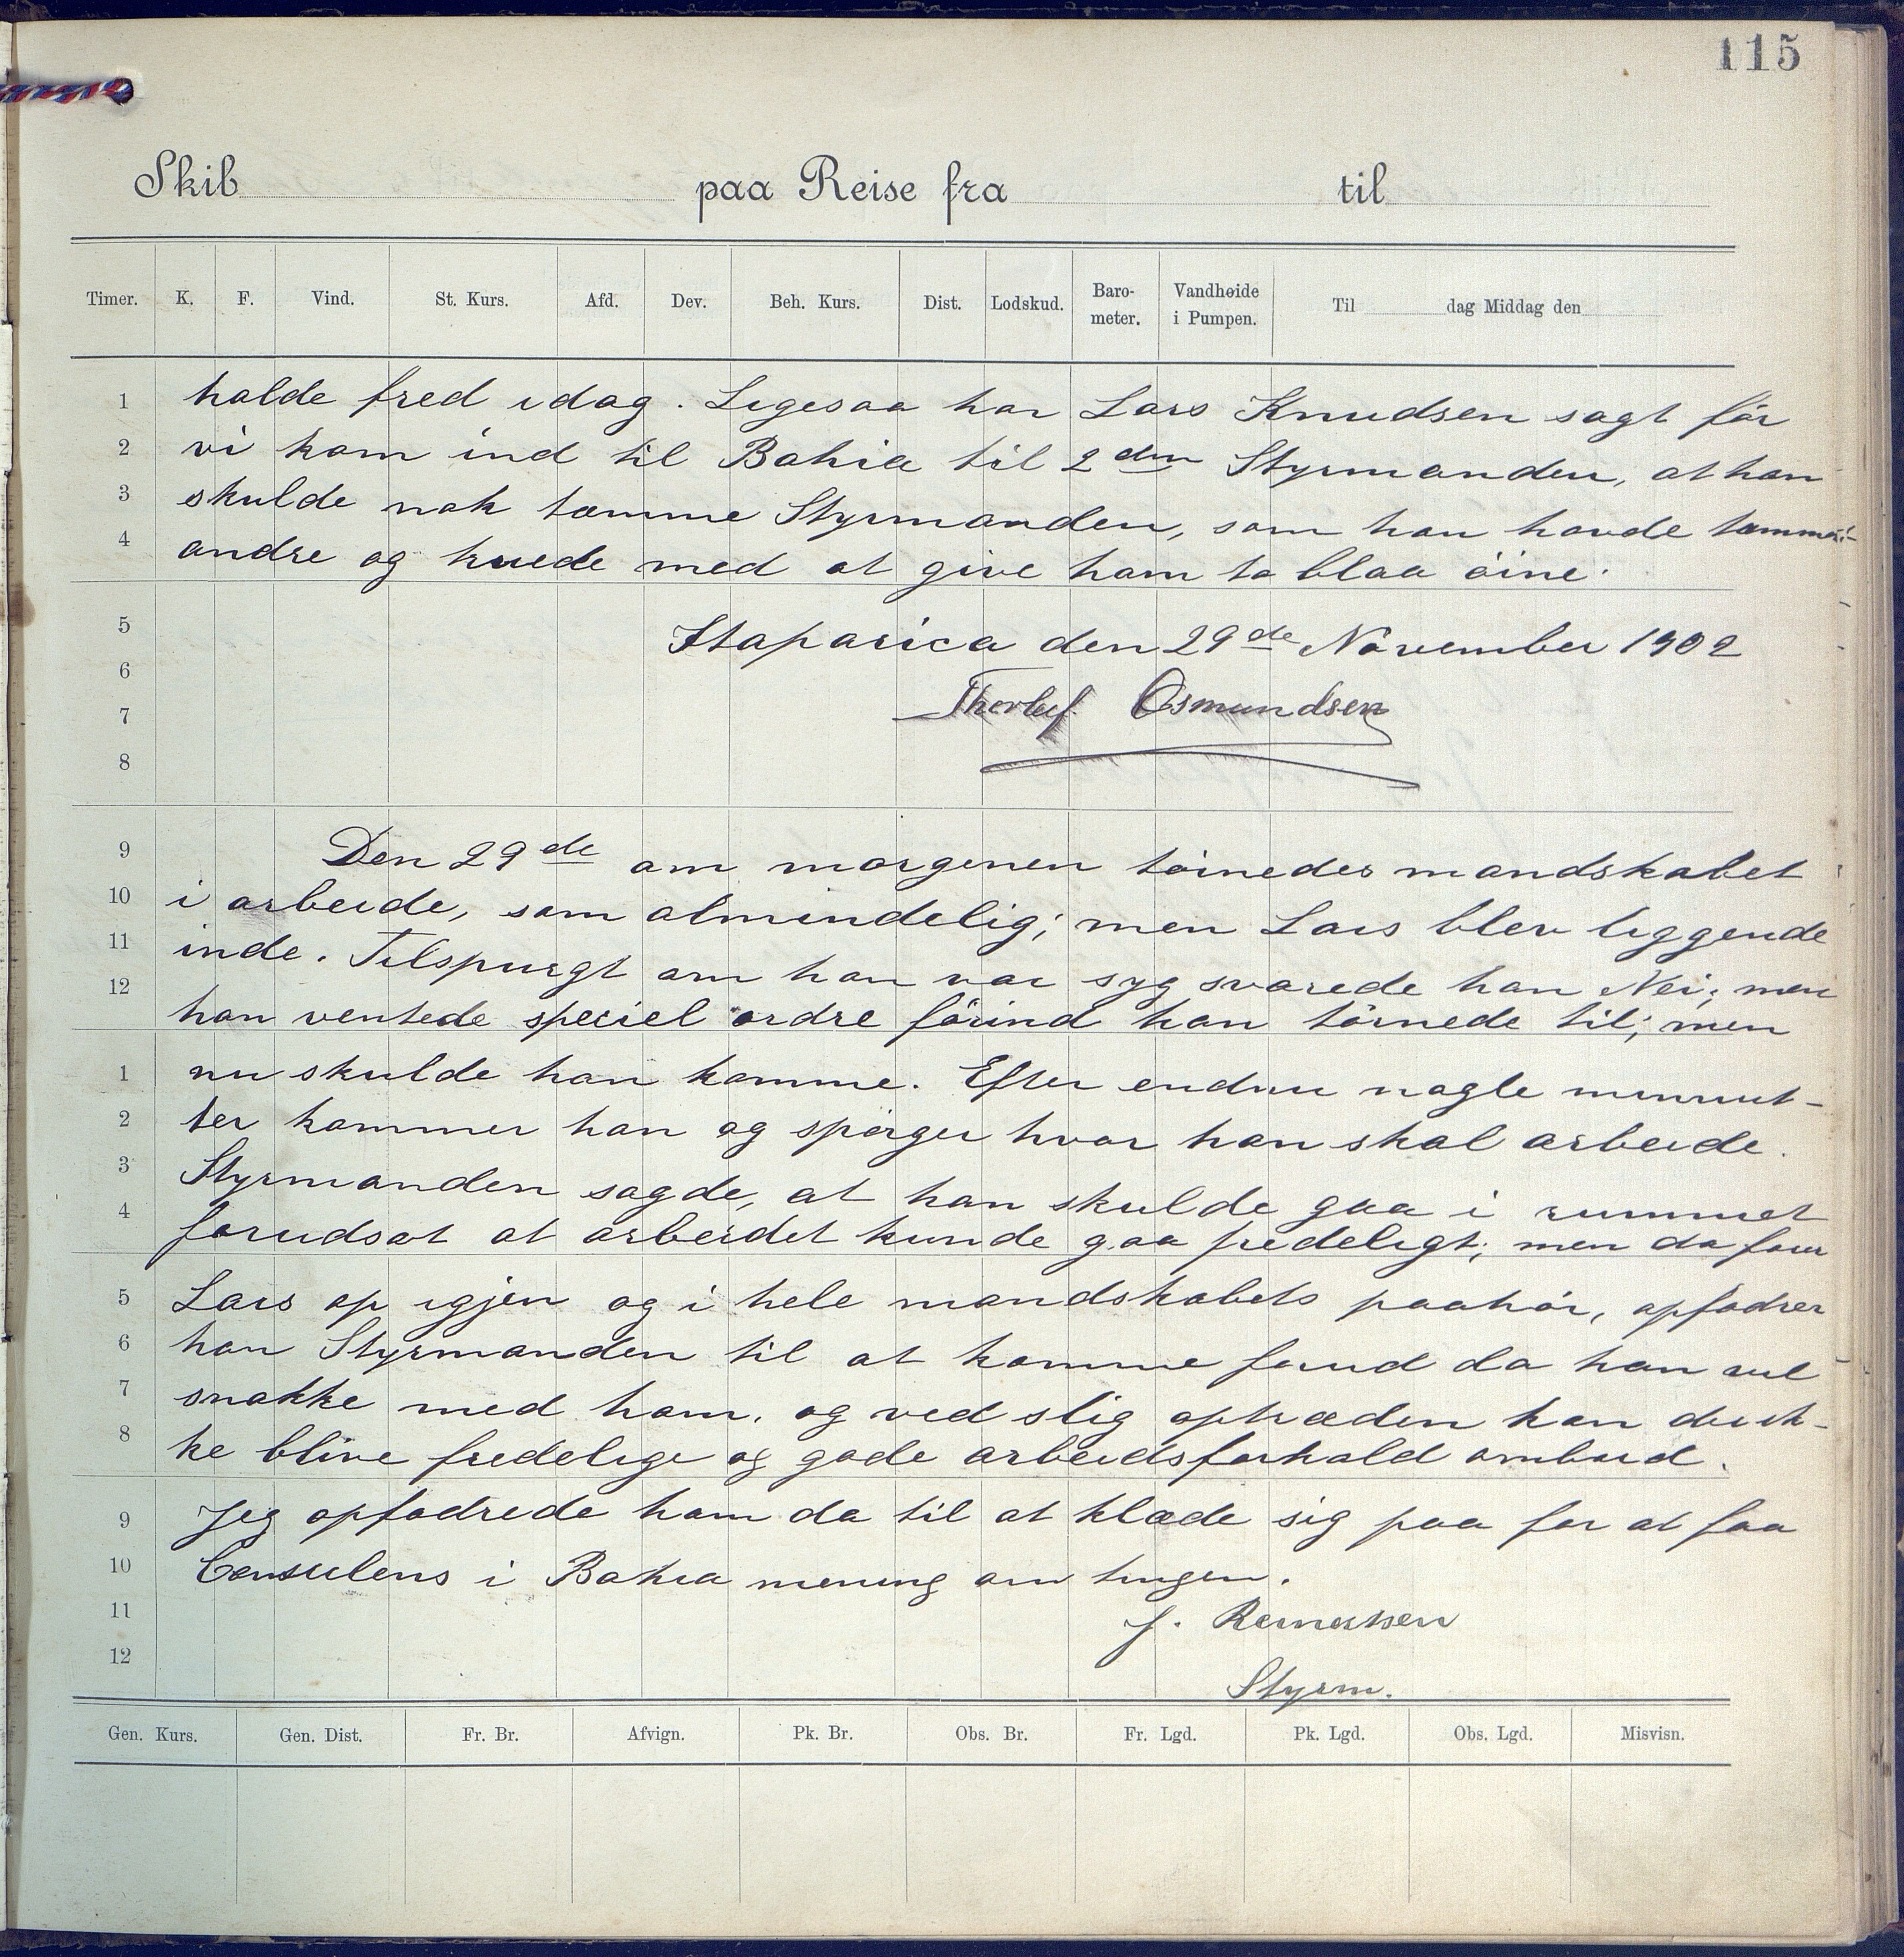 115
Skib paa Reise fra til
Timer. K. F. Vind. St. Kurs. Afd. Dev. Beh. Kurs. Dist. Lodskud. Baro-meter. Vandhøide i Pumpen. Til dag Middag den
1 holde fred idag. Ligesaa har Lars Knudsen sagt før
2 vi kom ind til Bahia til 2den Styrmanden, at han
3 skulde nok tæmme Styrmanden, som han havde tæmmet
4 andre og truede med at give ham to blaa öine.
5 Itaparica den 29de November 1902
6
7 Thorleif Osmundsen
8
9 Den 29de om morgenen törnedes mandskabet
10 i arbeide, som almindelig; men Lars blev liggende
11 inde. Tilspurgt om han var syg svarede han Nei; men
12 han ventede speciel ordre förind han törnede til; men
1 nu skulde han komme. Efter endnu nogle minnut-
2 ter kommer han og spörger hvor han skal arbeide.
3 Styrmanden sagde, at han skulde gaa i rummet
4 forudsat at arbeidet kunde gaa fredeligt; men da foer
5 Lars op igjen og i hele mandskabets paahör, opfodrer
6 han Styrmanden til at komme forud da han vil
7 snakke med ham. og ved slig optræden kan der ik-
8 ke blive fredelige og gode arbeidsforhold ombord.
9 Jeg opfodrede ham da til at klæde sig paa for at faa
10 Consulens i Bahia mening om tingen.
11 J.
12 Styrm.
Gen. Kurs. Gen. Dist. Fr. Br. Afvign. Pk. Br. Obs. Br. Fr. Lgd. Pk. Lgd. Obs. Lgd. Misvisn.